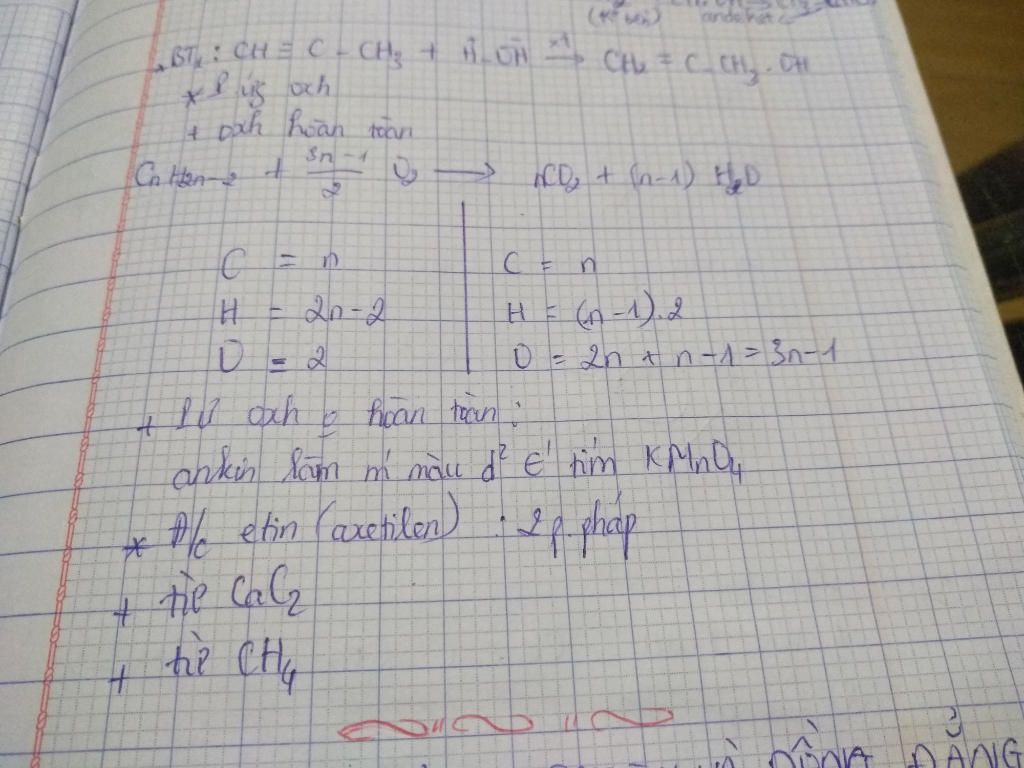 (K° bền) andehit
BTH: CH ≡ C - CH3 + H-OH → CH2 = C - CH3. OH
* P ứg oxh
+ oxh hoàn toàn
CnH2n-2 + (3n-1)/2 O2 → nCO2 + (n-1) H2O
C = n C = n
H = 2n-2 H = (n-1).2
O = 2 O = 2n + n-1 = 3n-1
+ PƯ oxh o hoàn toàn:
ankin làm m' màu d² t' tím KMnO4
* Đ/c etin (axetilen) : 2 p.pháp
+ từ CaC2
+ từ CH4
ĐỒNG ĐẲNG